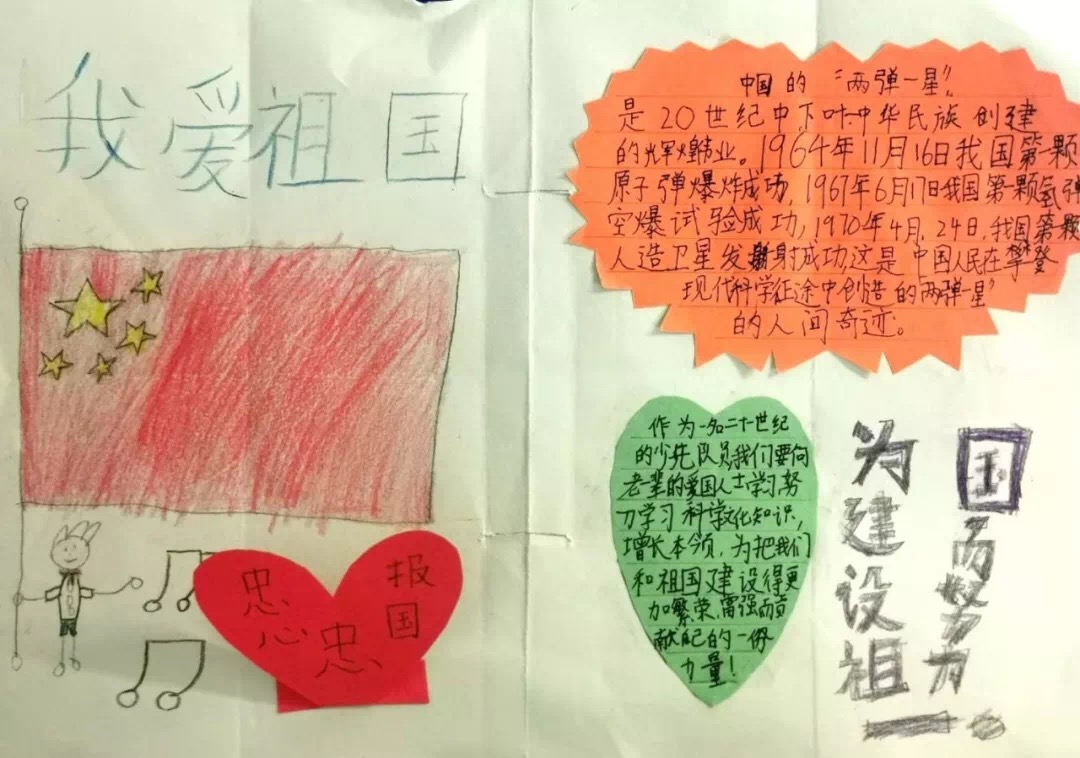 我爱祖国
中国的“两弹一星”
是20世纪中下叶中华民族创建
的辉煌伟业。1964年11月16日我国第一颗
原子弹爆炸成功，1967年6月17日我国第一颗氢弹
空爆试验成功，1970年4月，24日，我国第一颗
人造卫星发射成功这是中国人民在攀登
现代科学征途中创造的两弹一星”
的人间奇迹。
作为一名二十世纪
的少先队员我们要向
老辈的爱国人士学习努
力学习科学文化知识，
增长本领，为把我们
和祖国建设得更
加繁荣富强而贡
献自己的一份
力量！
忠
心
忠
报
国
为建设祖
国而努力